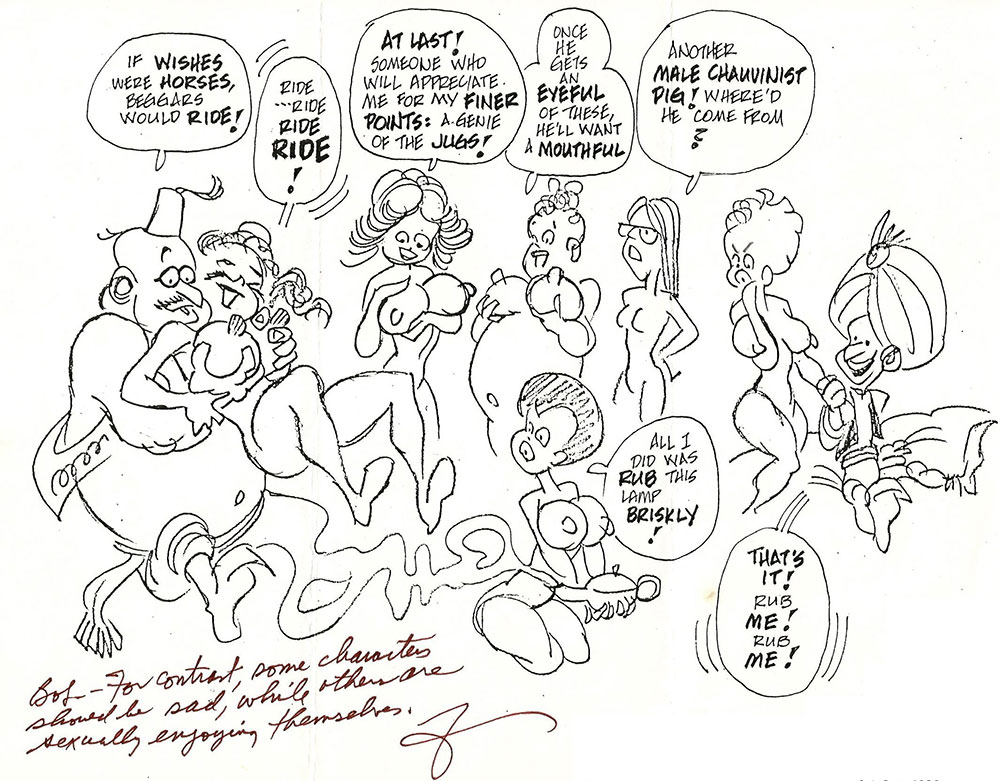 IF WISHES
WERE HORSES,
BEGGARS
WOULD RIDE!
RIDE
---RIDE
RIDE
RIDE
!
AT LAST!
SOMEONE WHO
WILL APPRECIATE
ME FOR MY FINER
POINTS: A GENIE
OF THE JUGS!
ONCE
HE
GETS
AN
EYEFUL
OF THESE,
HE'LL WANT
A MOUTHFUL
ANOTHER
MALE CHAUVINIST
PIG! WHERE'D
HE COME FROM
?
ALL I
DID WAS
RUB THIS
LAMP
BRISKLY
!
THAT'S
IT!
RUB
ME!
RUB
ME!
Bob - For contrast, some characters
should be sad, while others are
sexually enjoying themselves.